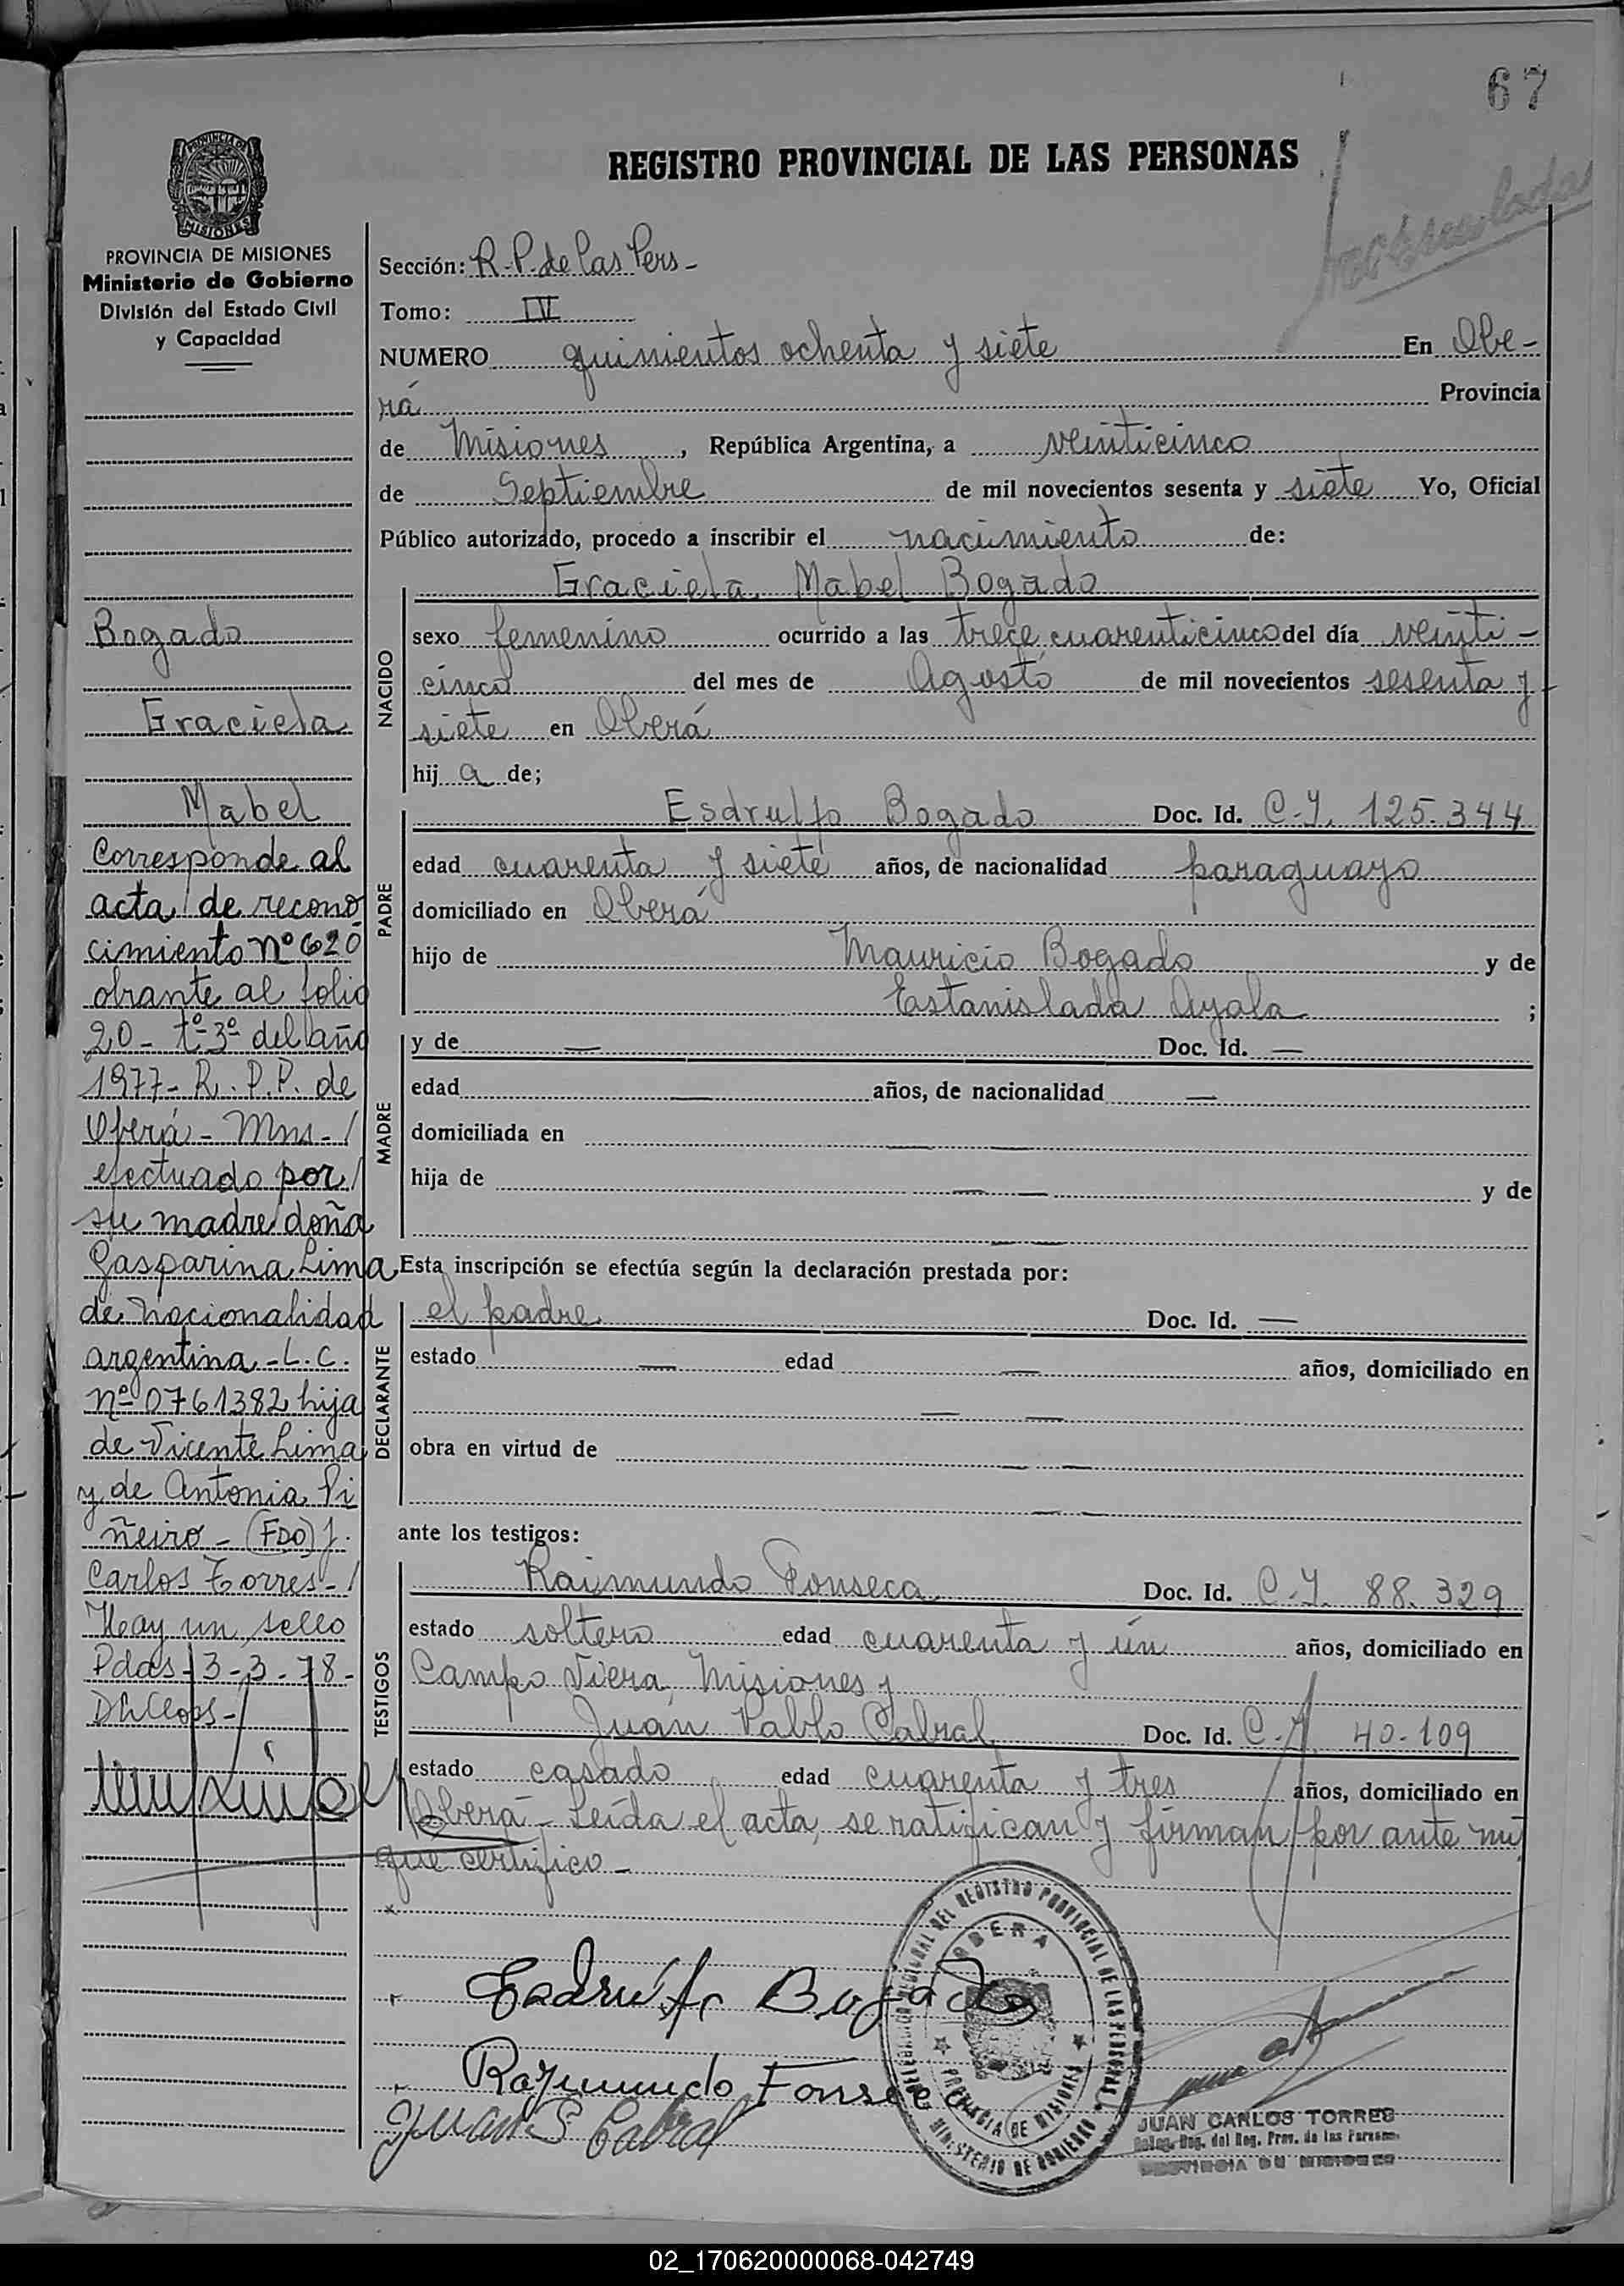 67
REGISTRO PROVINCIAL DE LAS PERSONAS
PROVINCIA DE
MISIONES
PROVINCIA DE MISIONES
Ministerio de Gobierno
División del Estado Civil
y Capacidad
Bogado
Graciela
Mabel
Corresponde al
acta de recono
cimiento Nº 620
obrante al folio
20 - tº 3º del año
1977 - R. P. P. de
Oberá - Mnes - /
efectuado por /
su madre doña
Gasparina Lima
de nacionalidad
argentina - L.C.
Nº 0761382 hija
de Vicente Lima
y de Antonia Pi
ñeiro - (FDO) J.
Carlos Torres - /
Hay un sello
Pdas - 3 - 3 - 78 -
Sección: R.P. de las Pers -
Tomo: IV
NUMERO quinientos ochenta y siete En Obe -
rá Provincia
de Misiones , República Argentina, a veinticinco
de Septiembre de mil novecientos sesenta y siete Yo, Oficial
Público autorizado, procedo a inscribir el nacimiento de:
Graciela Mabel Bogado
NACIDO
sexo femenino ocurrido a las trece, cuarenticinco del día veinti -
cinco del mes de Agosto de mil novecientos sesenta y
siete en Oberá
hij a de;
PADRE
Esdrulfo Bogado Doc. Id. C.I. 125.344
edad cuarenta y siete años, de nacionalidad paraguayo
domiciliado en Oberá
hijo de Mauricio Bogado y de
Estanislada Ayala ;
MADRE
y de — Doc. Id. —
edad — años, de nacionalidad —
domiciliada en — —
hija de — — y de
— —
Esta inscripción se efectúa según la declaración prestada por:
DECLARANTE
el padre Doc. Id. —
estado — edad — años, domiciliado en
— —
obra en virtud de — —
— —
ante los testigos:
TESTIGOS
Raimundo Fonseca Doc. Id. C.I. 88.329
estado soltero edad cuarenta y ún años, domiciliado en
Campo Viera, Misiones y
Juan Pablo Cabral Doc. Id. C.I. 40.109
estado casado edad cuarenta y tres años, domiciliado en
Oberá - Leída el acta, se ratifican y firman por ante mí
que certifico -
Esdrulfo Bogado
Raymundo Fonseca
Juan P Cabral
REGIONAL DEL REGISTRO PROVINCIAL DE LAS PERSONAS
OBERA
PROVINCIA DE MISIONES
MINISTERIO DE GOBIERNO
JUAN CARLOS TORRES
Deleg. Reg. del Reg. Prov. de las Personas
PROVINCIA DE MISIONES
02_170620000068-042749